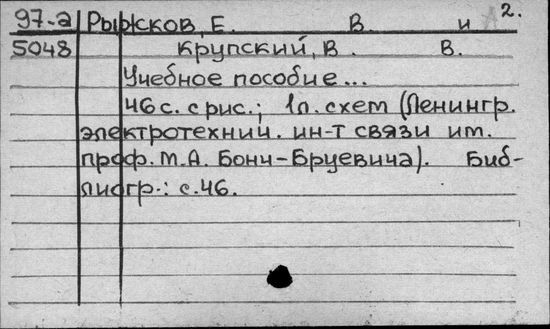 97-а Рыжков, Е. В. и 2.
5048 Крупский, В. В.
Учебное пособие...
46 с. с рис.; 1 л. схем (Ленингр.
электротехнич. ин-т связи им.
проф. М.А. Бонч-Бруевича). Биб-
лиогр.: с. 46.